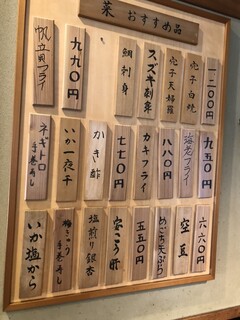 菜 おすすめ品
一、二〇〇円
穴子白焼
穴子天婦羅
スズキ刺身
鯛刺身
九九〇円
帆立貝フライ
九五〇円
海老フライ
八八〇円
カキフライ
七七〇円
かき酢
いか一夜干
ネギトロ手巻寿し
六六〇円
空豆
めごち天ぷら
五五〇円
塩煎り銀杏
梅きゅう手巻寿し
いか塩から